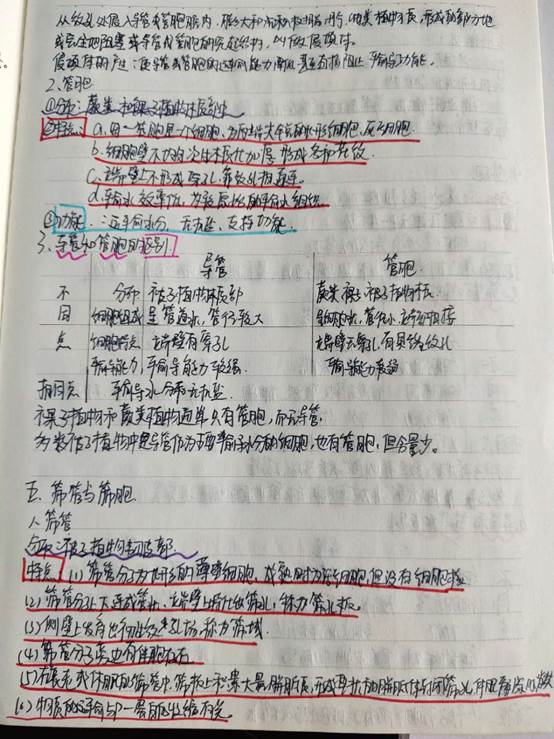 从纹孔处侵入导管或管胞腔内,膨大和沉积树脂、丹宁、油类等物质,形成部分地
或完全地阻塞导管或管胞的突起结构,叫做侵填体。
侵填体的产生使导管或管胞的运输能力降低甚至直接阻止,输导功能。
2.管胞
①分布:蕨类和裸子植物木质部中
②特点:a.每一管胞是一个细胞,为两端尖斜的长形细胞,死细胞
b.细胞壁不均匀次生木质化加厚形成各种花纹
c.端壁上不形成穿孔,靠纹孔相连通
d.输水效率低,为较原始的输水组织
③功能:运输水分、无机盐,支持功能
3.导管和管胞的区别
导管 管胞
不 分布 被子植物木质部 蕨类 裸子 被子植物木质
同 细胞组成 是管道状,管径较大
点 细胞特点 端壁有穿孔 端壁无穿孔有具缘纹孔
输导能力 输导能力较强 输导能力较弱
相同点 输导水分和无机盐
裸子植物和蕨类植物通常只有管胞,而无导管
多数被子植物中是导管作为主要输水分的细胞,也有管胞,但含量少。
五、筛管与筛胞
1.筛管
分布:被子植物韧皮部
特点:(1)筛管分子为长形的薄壁细胞,成熟时为活细胞,但没有细胞核
(2)筛管分子上下连成管状,端壁上特化出筛孔,称为筛板
(3)侧壁上发育出初生纹孔场称为筛域
(4)筛管分子旁边有伴胞存在
(5)衰老或休眠的筛管中,筛板上积累大量胼胝质,形成垫状的胼胝体封闭筛孔
(6)物质的运输与 有关。